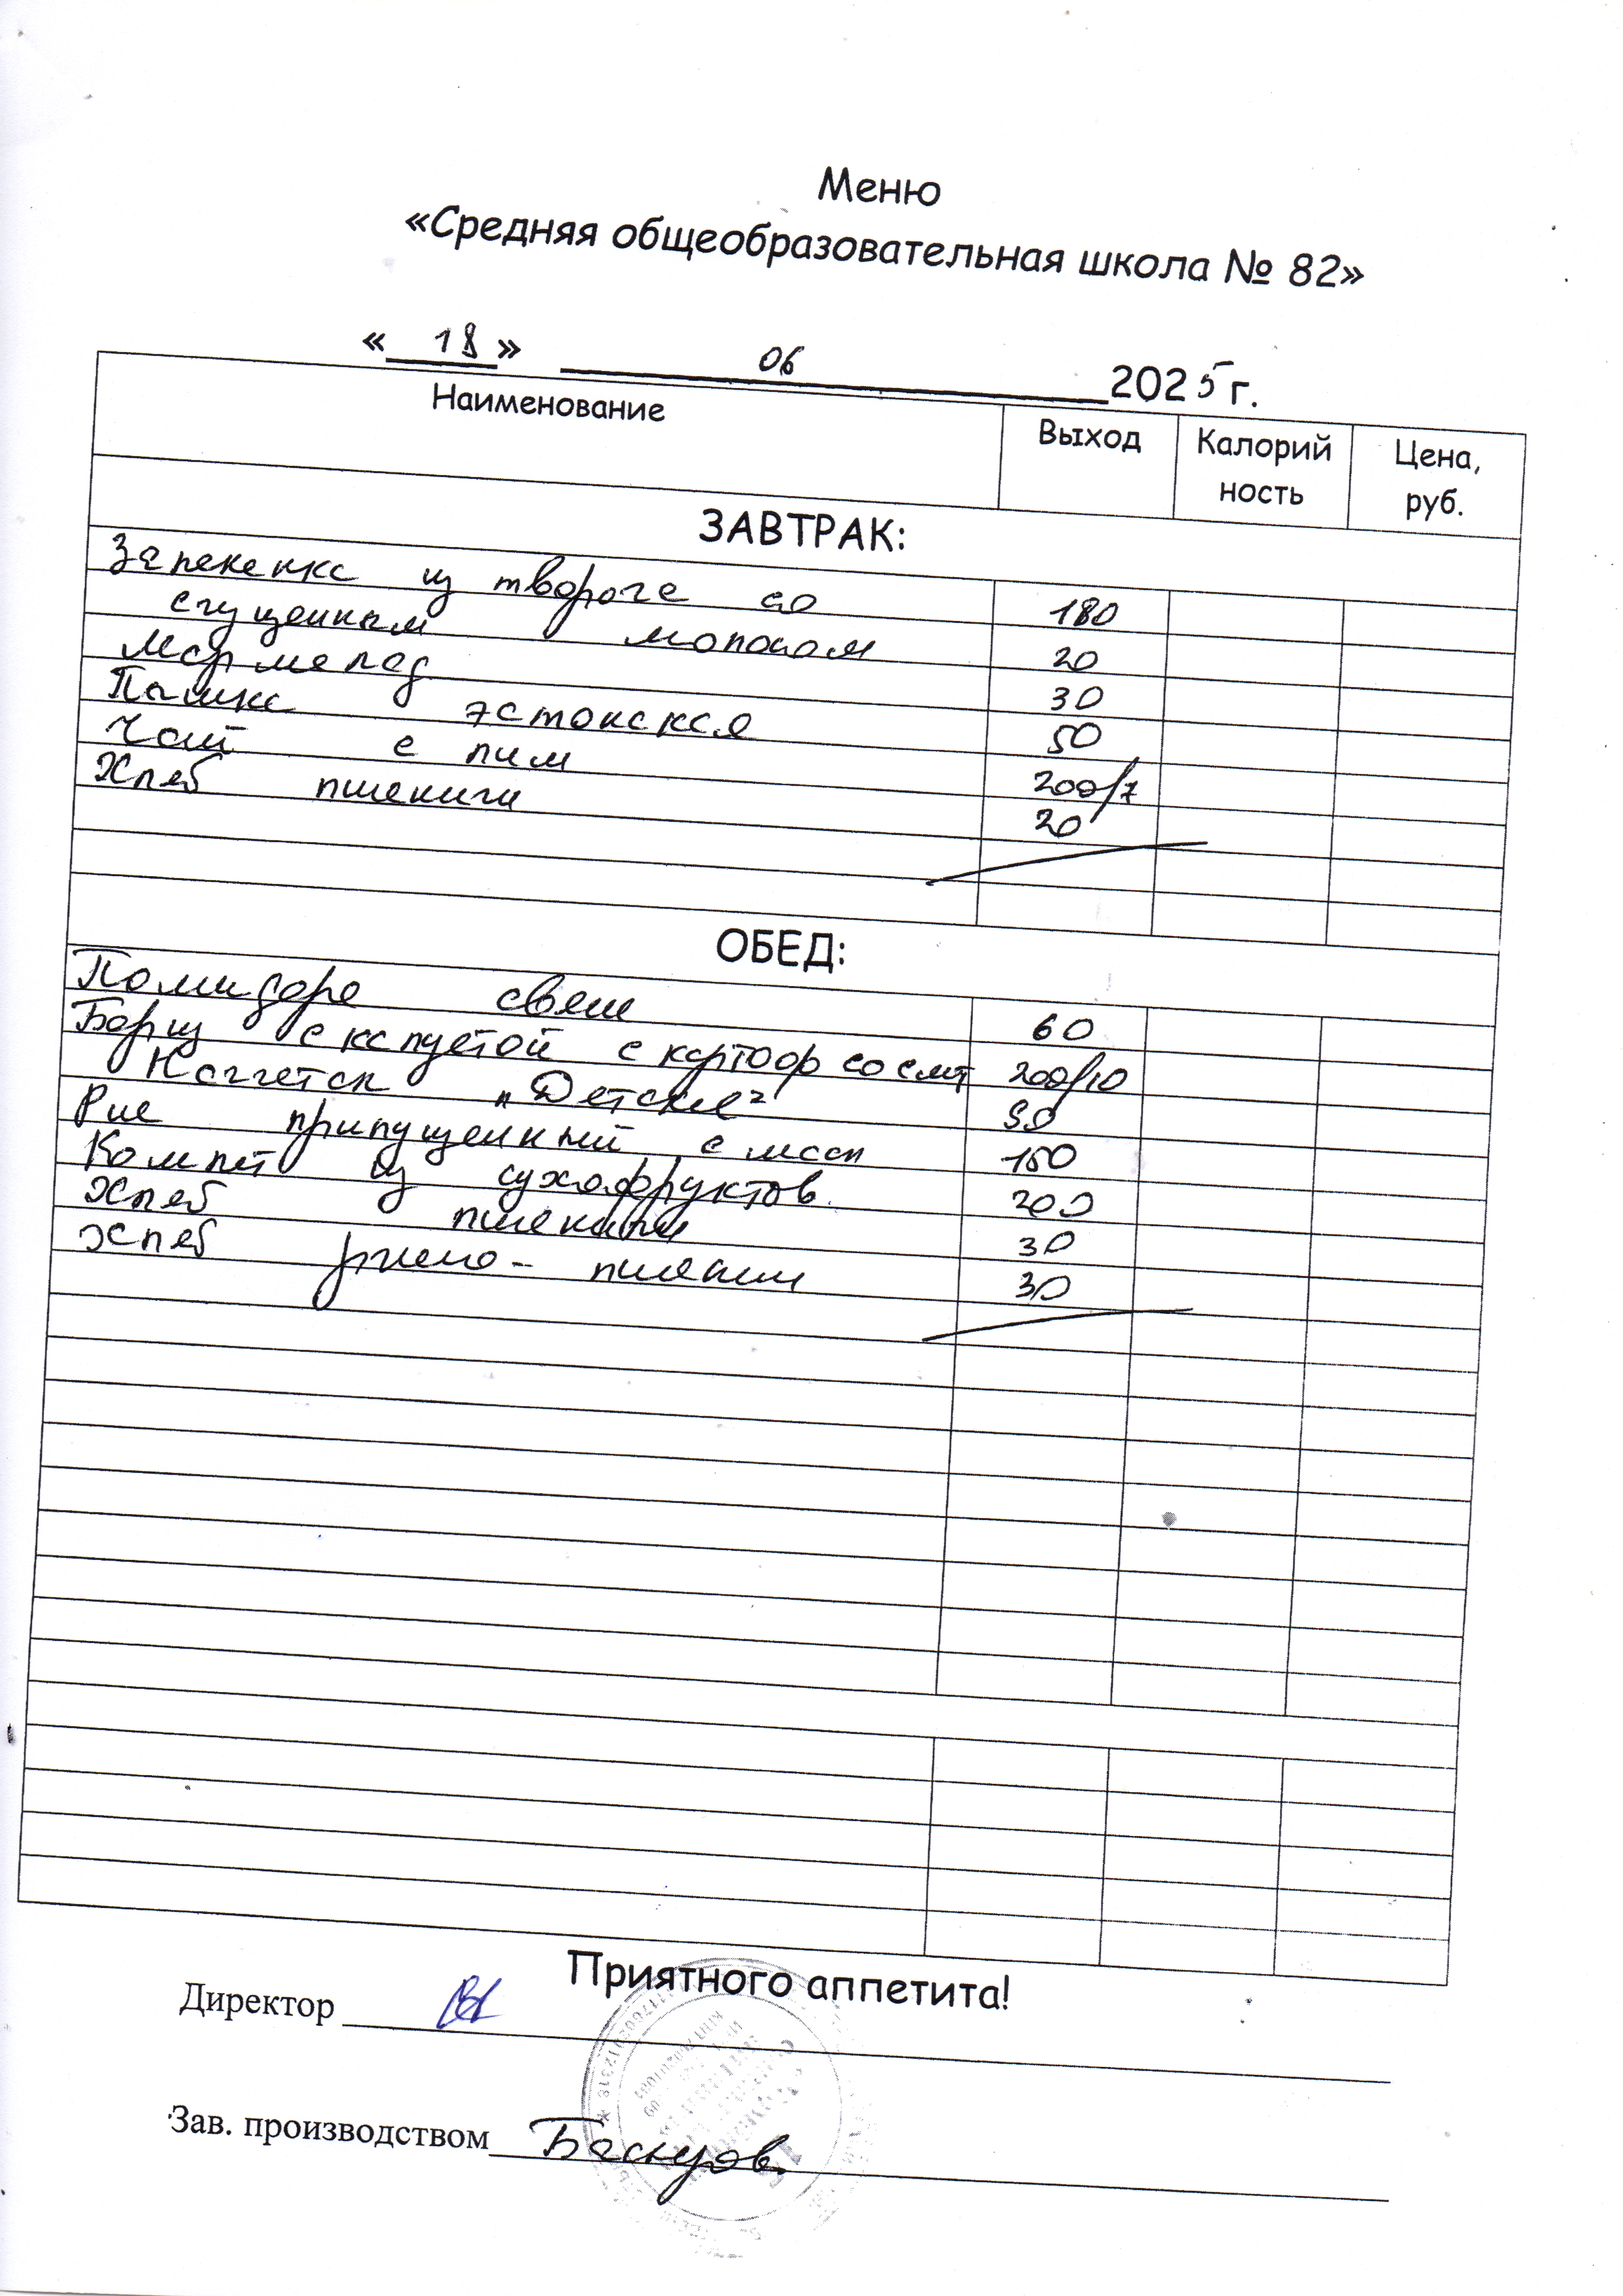 Меню
«Средняя общеобразовательная школа № 82»
«18» 06 2025 г.
Наименование Выход Калорий Цена,
ность руб.
ЗАВТРАК:
Запеканка из творога со 180
сгущенным молоком 20
Мармелад 30
Плюшка эстонская 50
Чай с лим 200/7
Хлеб пшенич 20
ОБЕД:
Помидоре свеж 60
Борщ с капустой с картоф со смт 200/10
Наггетсы "Детские" 90
Рис припущенный с масл 150
Компот из сухофруктов 200
Хлеб пшеничн 30
Хлеб ржано- пшенич 30
Приятного аппетита!
Директор
Зав. производством